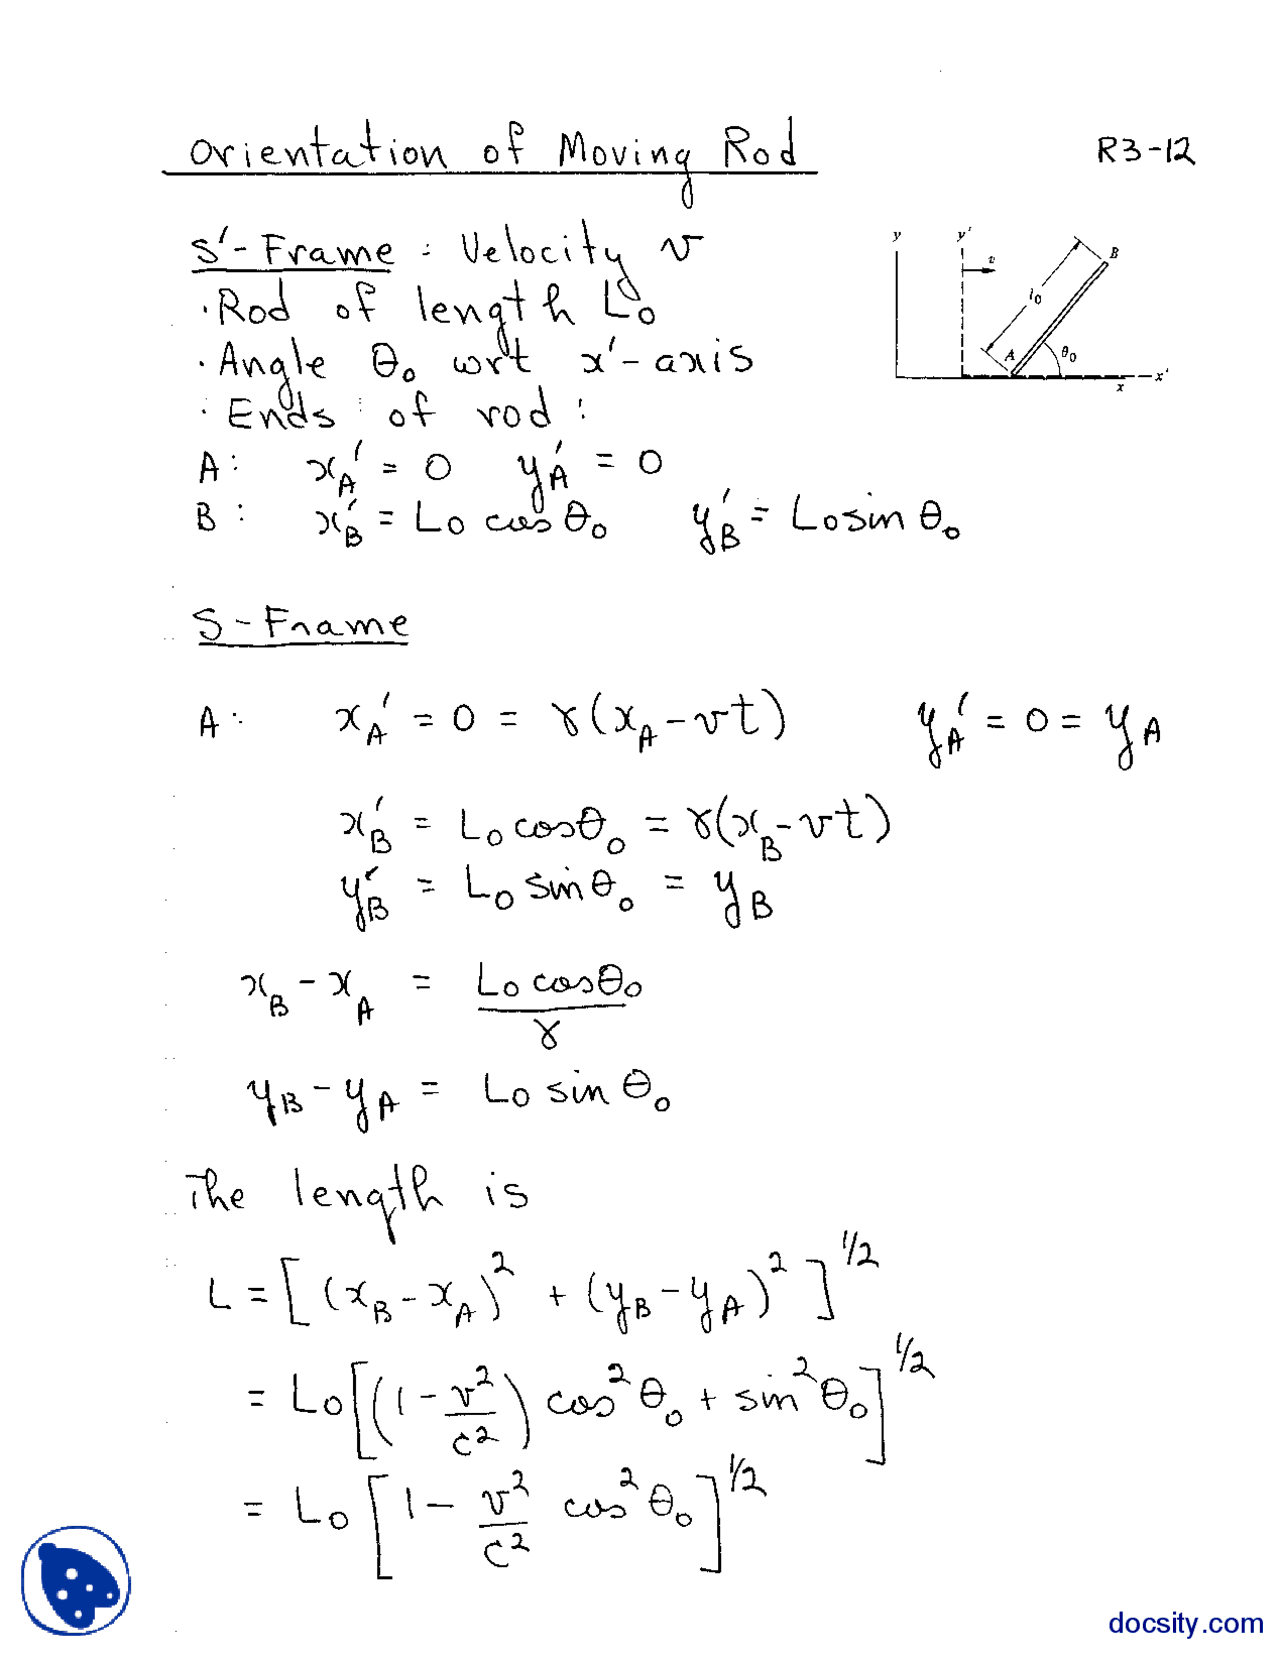 Orientation of Moving Rod R3-12
S'-Frame : Velocity v
· Rod of length L₀
· Angle θ₀ wrt x'-axis
· Ends of rod :
y y' v l₀ B A θ₀ x x'
A: x_A' = 0 y_A' = 0
B: x_B' = L₀ cos θ₀ y_B' = L₀ sin θ₀
S-Frame
A: x_A' = 0 = γ(x_A - vt) y_A' = 0 = y_A
x_B' = L₀ cosθ₀ = γ(x_B - vt)
y_B' = L₀ sinθ₀ = y_B
x_B - x_A = L₀ cosθ₀ / γ
y_B - y_A = L₀ sin θ₀
The length is
L = [(x_B - x_A)² + (y_B - y_A)²]^1/2
= L₀[(1 - v²/c²) cos²θ₀ + sin²θ₀]^1/2
= L₀[1 - v²/c² cos²θ₀]^1/2
docsity.com